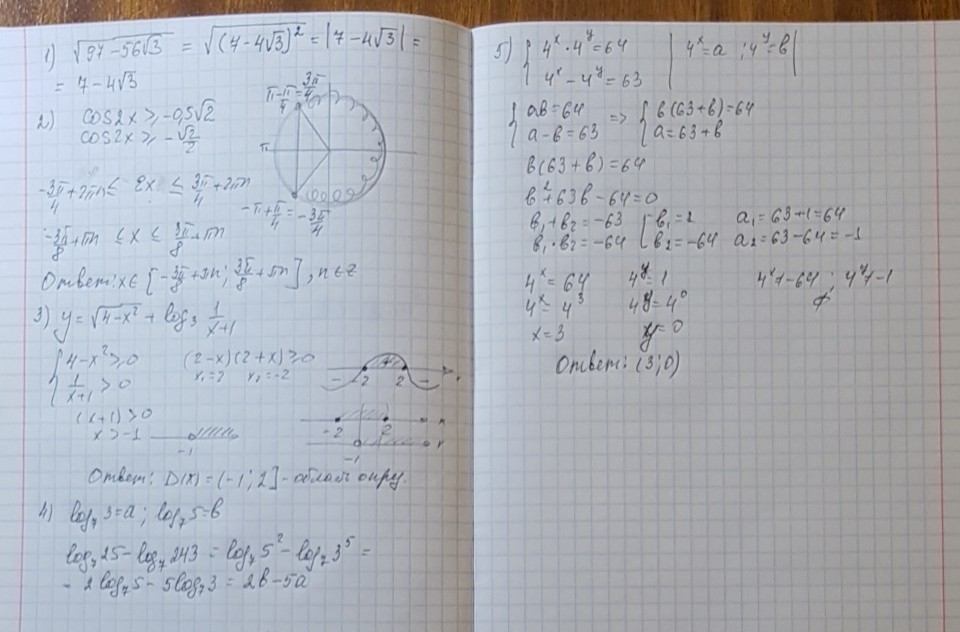 1) √(97-56√3) = √((7-4√3)²) = |7-4√3| =
= 7-4√3
2) cos2x ≥ -0,5√2
cos2x ≥ -√2/2
π-π/4=3π/4
π
-π+π/4=-3π/4
-3π/4+2πn ≤ 2x ≤ 3π/4+2πn
-3π/8+πn ≤ x ≤ 3π/8+πn
Ответ: x∈[-3π/8+πn; 3π/8+πn], n∈z
3) y=√(4-x²) + log₃ 1/(x+1)
{ 4-x²≥0 (2-x)(2+x)≥0
1/(x+1) >0 x₁=2 x₂=-2
- -2 + 2 -
(x+1)>0
x>-1
-1
-2 2 x
-1 x
Ответ: D(x)=(-1; 2] - област опру.
4) log₇3=a; log₇5=b
log₇25-log₇243 = log₇5²-log₇3⁵ =
- 2log₇5-5log₇3 = 2b-5a
5) { 4ˣ·4ʸ=64 | 4ˣ=a ; 4ʸ=b |
4ˣ-4ʸ=63
{ ab=64 => { b(63+b)=64
a-b=63 a=63+b
b(63+b)=64
b²+63b-64=0
b₁+b₂=-63 [ b₁=1 a₁=63+1=64
b₁·b₂=-64 b₂=-64 a₂=63-64=-1
4ˣ=64 4ʸ=1 4ˣ≠-64 ; 4ʸ≠-1
4ˣ=4³ 4ʸ=4⁰ ∅
x=3 y=0
Ответ: (3;0)